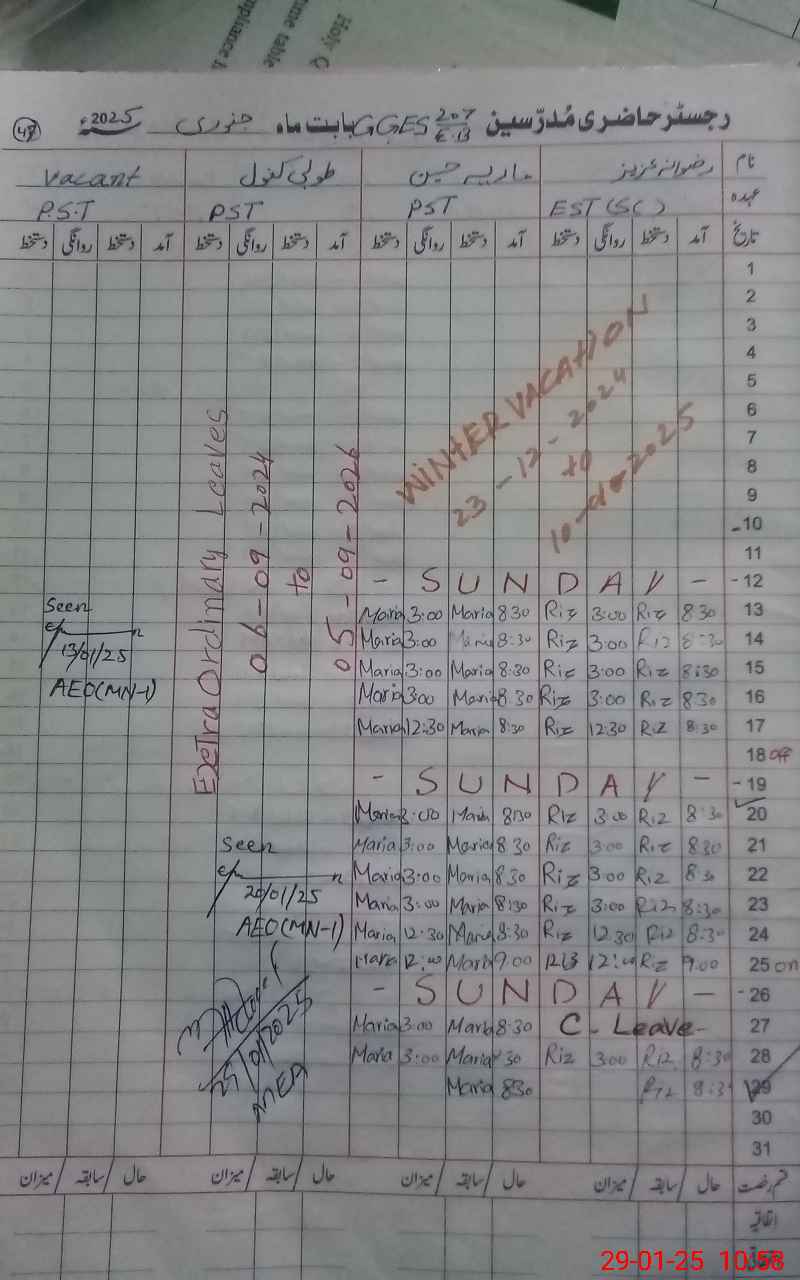 Holy Q
time table
mpliance
47 رجسٹر حاضری مُدرّسین GGES 207 E.B بابت ماہ جنوری 2025ء
نام رضوانہ عزیز ماریہ حسین طوبیٰ کنول Vacant
عہدہ EST (SC) PST PST P.S.T
تاریخ آمد دستخط روانگی دستخط آمد دستخط روانگی دستخط آمد دستخط روانگی دستخط آمد دستخط روانگی دستخط
1
2
3
4
5
6
7
8
9
10
11
WINTER VACATION
23-12-2024
to
10-01-2025
Extra Ordinary Leaves
06-09-2024
to
05-09-2026
- S U N D A Y - 12
Maria 3:00 Maria 8:30 Riz 3:00 Riz 8:30 13
Maria 3:00 Maria 8:30 Riz 3:00 Riz 8:30 14
Maria 3:00 Maria 8:30 Riz 3:00 Riz 8:30 15
Maria 3:00 Maria 8:30 Riz 3:00 Riz 8:30 16
Maria 12:30 Maria 8:30 Riz 12:30 Riz 8:30 17
18 off
- S U N D A Y - 19
Maria 3:00 Maria 8:30 Riz 3:00 Riz 8:30 20
Maria 3:00 Maria 8:30 Riz 3:00 Riz 8:30 21
Maria 3:00 Maria 8:30 Riz 3:00 Riz 8:30 22
Maria 3:00 Maria 8:30 Riz 3:00 Riz 8:30 23
Maria 12:30 Maria 8:30 Riz 12:30 Riz 8:30 24
Maria 12:00 Maria 9.00 Riz 12:00 Riz 9.00 25 on
- S U N D A Y - 26
Maria 3:00 Maria 8:30 C - Leave - 27
Maria 3:00 Maria 30 Riz 3:00 Riz 8:30 28
Maria 8:30 Riz 8:3 29
30
31
Seen
13/01/25
AEO(MN-1)
Seen
20/01/25
AEO(MN-1)
25/01/2025
MEA
قسم رخصت حال / سابقہ / میزان حال / سابقہ / میزان حال / سابقہ / میزان حال / سابقہ / میزان
اتفاقیہ
29-01-25 10:58